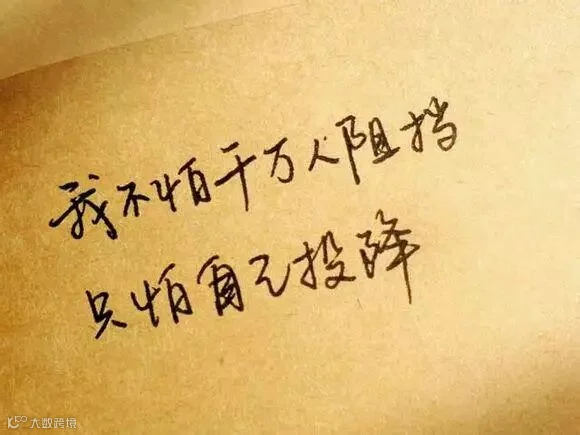 我不怕千万人阻挡
只怕自己投降
大数跨境